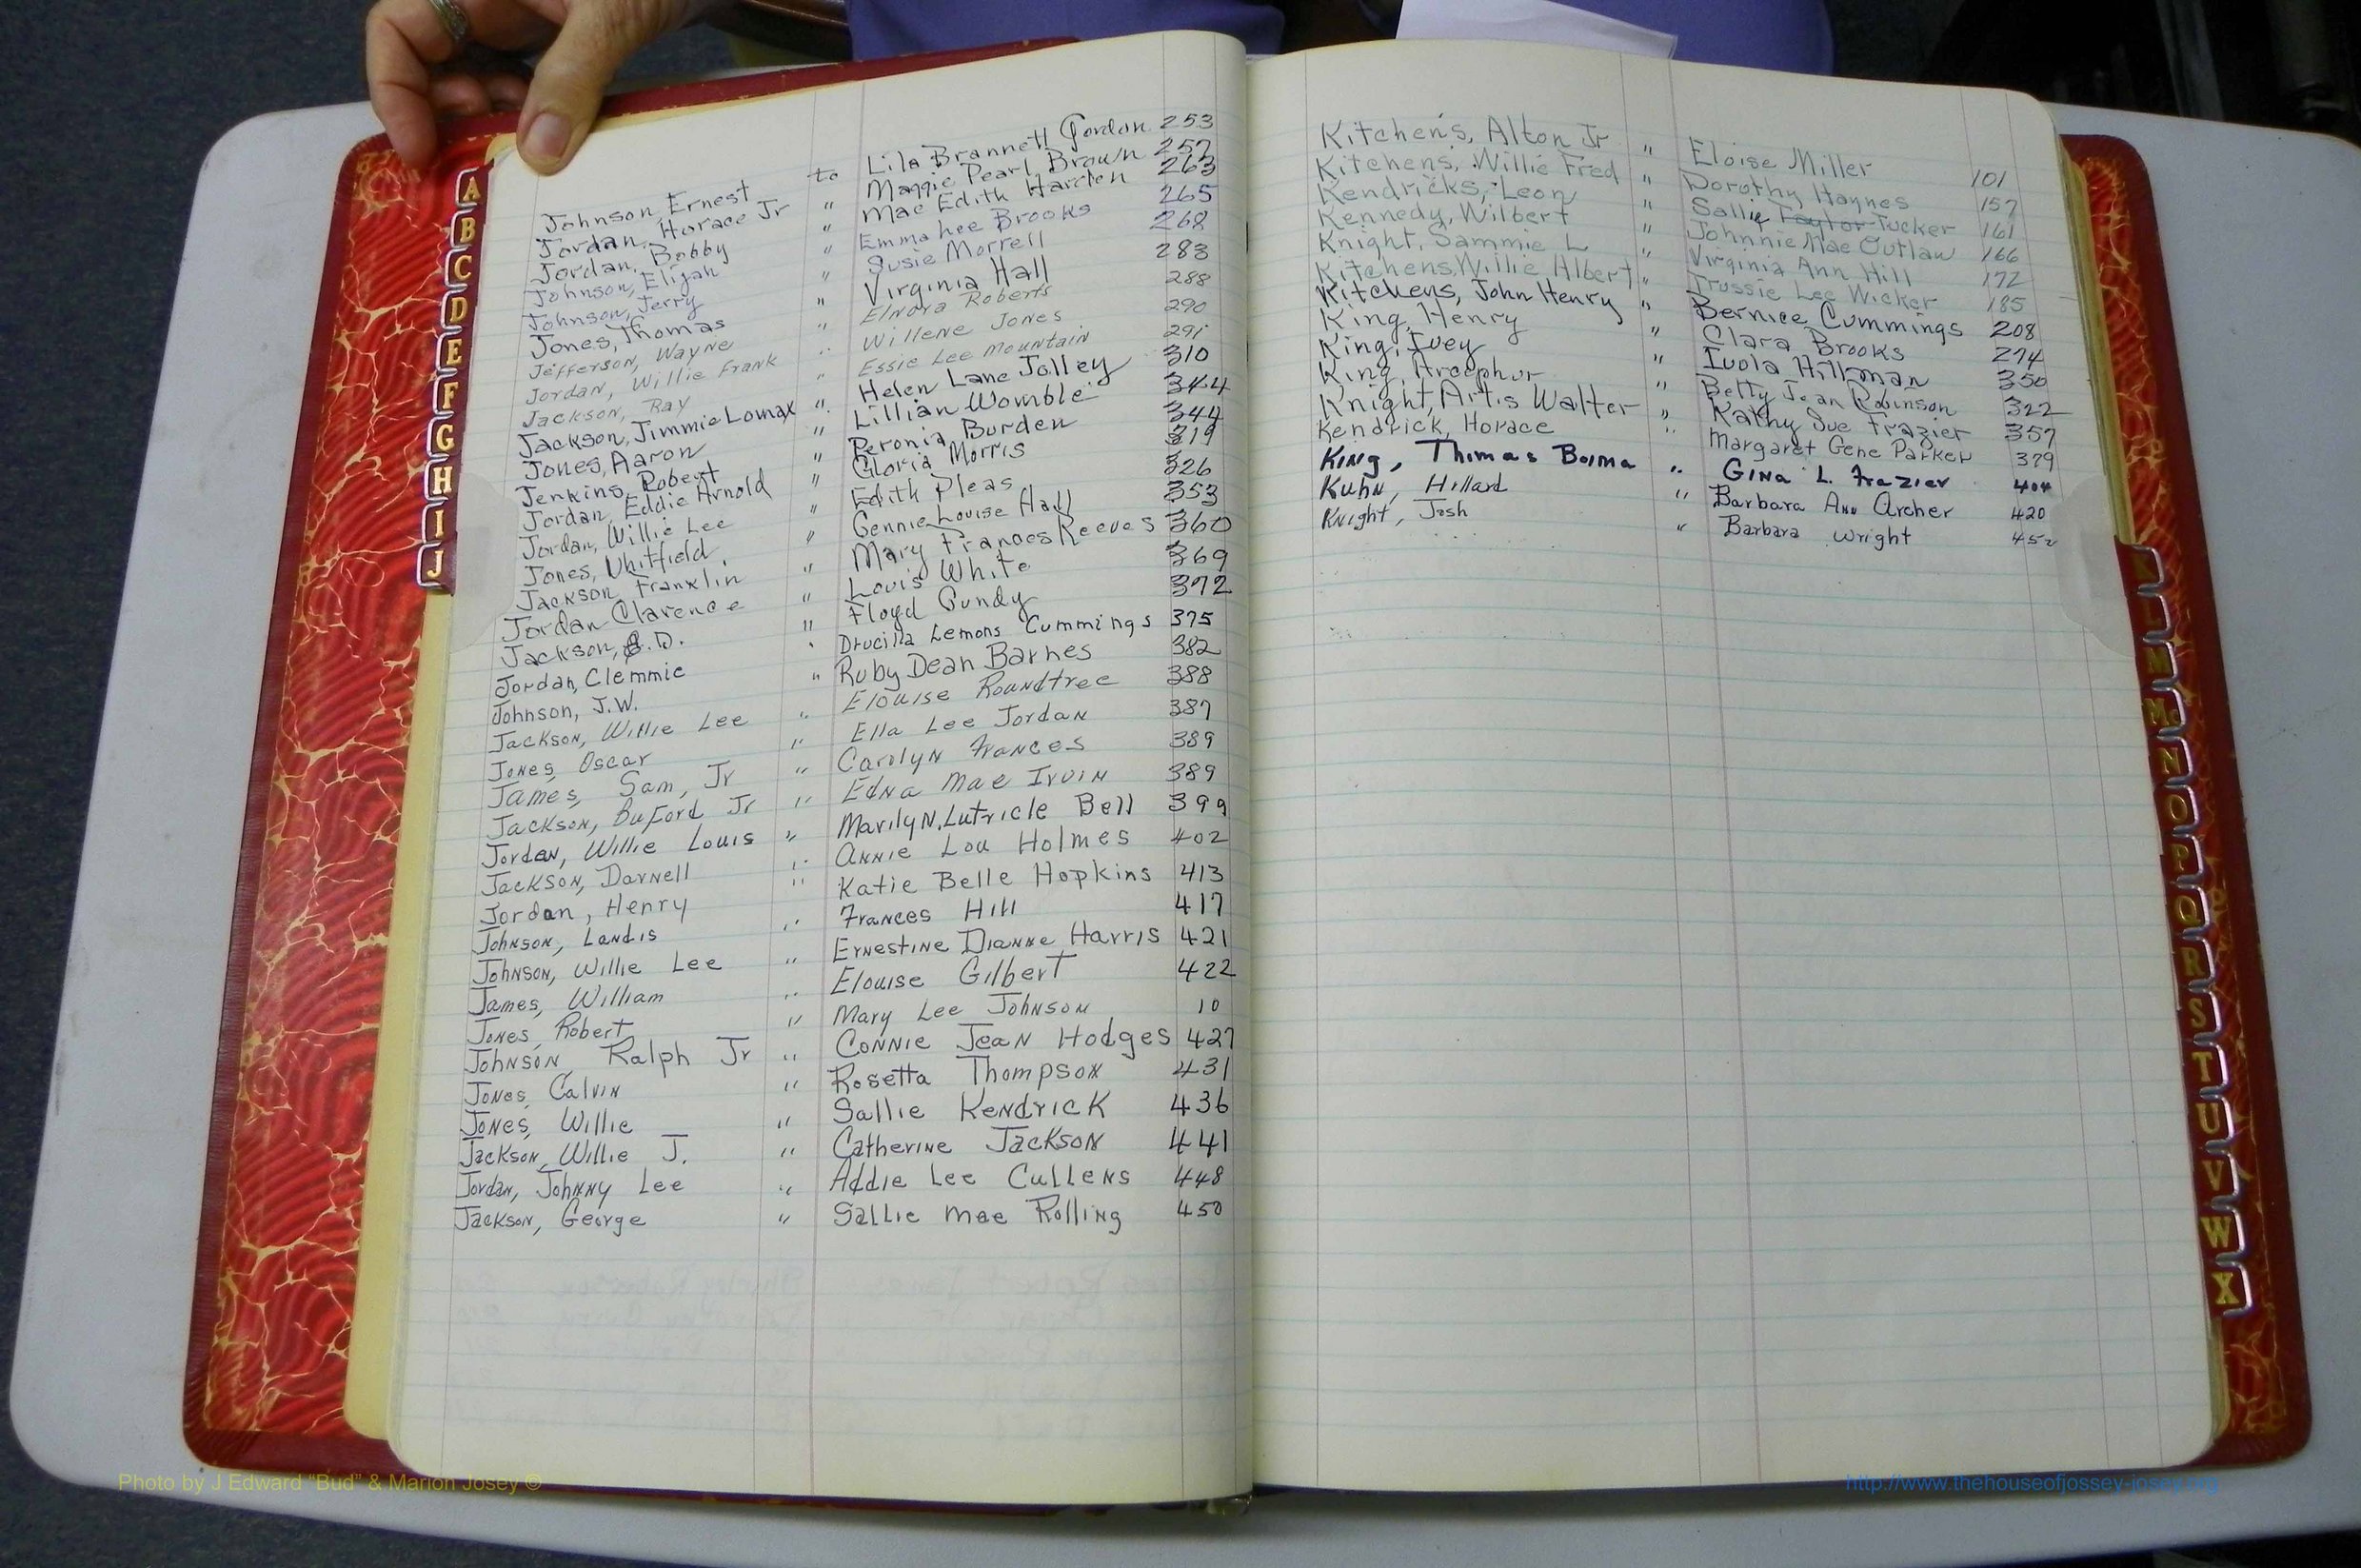 A
B
C
D
E
F
G
H
I
J
Johnson, Ernest to Lila Brannett Gordon 253
Jordan, Horace Jr " Maggie Pearl Brown 257
Jordan, Bobby " Mae Edith Harden 263
Johnson, Elijah " Emma Lee Brooks 265
Johnson, Jerry " Susie Morrell 268
Jones, Thomas " Virginia Hall 283
Jefferson, Wayne " Elnora Roberts 288
Jordan, Willie Frank " Willene Jones 290
Jackson, Ray " Essie Lee Mountain 291
Jackson, Jimmie Lomax " Helen Lane Jolley 310
Jones, Aaron " Lillian Womble 344
Jenkins, Robert " Peronia Burden 344
Jordan, Eddie Arnold " Gloria Morris 319
Jordan, Willie Lee " Edith Pleas 326
Jones, Whitfield " Gennie Louise Hall 353
Jackson, Franklin " Mary Frances Reeves 360
Jordan Clarence " Louis White 369
Jackson, .D. " Floyd Gundy 372
Jordan, Clemmie " Drucilla Lemons Cummings 375
Johnson, J.W. " Ruby Dean Barnes 382
Jackson, Willie Lee " Elouise Roundtree 388
Jones, Oscar " Ella Lee Jordan 387
James, Sam, Jr " Carolyn Frances 389
Jackson, Buford Jr " Edna Mae Irvin 389
Jordan, Willie Louis " Marilyn Lutricle Bell 399
Jackson, Darnell " Annie Lou Holmes 402
Jordan, Henry " Katie Belle Hopkins 413
Johnson, Landis " Frances Hill 417
Johnson, Willie Lee " Ernestine Dianne Harris 421
James, William " Elouise Gilbert 422
Jones, Robert " Mary Lee Johnson 10
Johnson, Ralph Jr " Connie Jean Hodges 427
Jones, Calvin " Rosetta Thompson 431
Jones, Willie " Sallie Kendrick 436
Jackson, Willie J. " Catherine Jackson 441
Jordan, Johnny Lee " Addie Lee Cullens 448
Jackson, George " Sallie Mae Rolling 450
Kitchens, Alton Jr " Eloise Miller 101
Kitchens, Willie Fred " Dorothy Haynes 157
Kendricks, Leon " Sallie Taylor Tucker 161
Kennedy, Wilbert " Johnnie Mae Outlaw 166
Knight, Sammie L " Virginia Ann Hill 172
Kitchens, Willie Albert " Trussie Lee Wicker 185
Kitchens, John Henry " Bernice Cummings 208
King, Henry " Clara Brooks 274
King, Ivey " Ivola Hillman 350
King, " Betty Jean Robinson 322
Knight, Artis Walter " Kathy Sue Frazier 357
Kendrick, Horace " Margaret Gene Parker 379
King, Thomas Boima " Gina L. Frazier 404
Kuhn, Hillard " Barbara Ann Archer 420
Knight, Josh " Barbara Wright 452
K
L
M
Mc
N
O
P
Q
R
S
T
U
V
W
X
Photo by J Edward “Bud” & Marion Josey ©
http://www.thehouseofjossey-josey.org